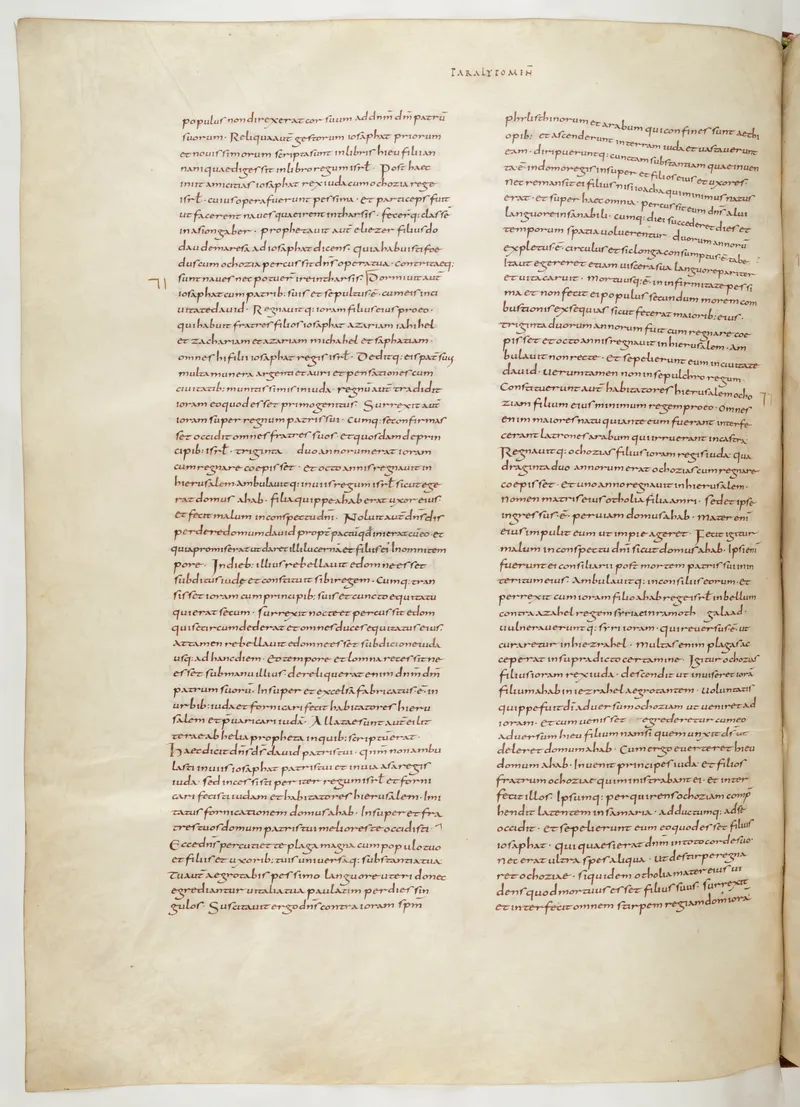 PARALYPOMIN̄
populus non direxerat cor suum ad dn̄m dm̄ patrū
suorum · Reliqua aut̄ gestorum iosaphat priorum
et nouissimorum scripta sunt in libris hieu filii an
nani quae digessit in libro regum isrł · Post haec
iniit amicitias iosaphat rex iuda cum ochozia rege
isrł · cuius opera fuerunt pessima · et particeps fuit
ut facerent naues quae irent in tharsis · fecerq: classē
in asiongaber · prophetauit aut̄ eliezer filius do
dau de maresa ad iosaphat dicens · quia habuisti foe
dus cum ochozia percussit dn̄s opera tua · contritaeq:
sunt naues nec potuer̄ ire in tharsis · Dormiuit aut̄
iosaphat cum patrib: suis et sepultus ē · cum eis in ci
uitate dauid · Regnauitq: ioram filius eius pro eo ·
qui habuit fratres filios iosaphat azariam iahihel
et zachariam et azariam michahel et saphatiam ·
omnes hi filii iosaphat regis isrł · Deditq: eis pat̄ suus
multa munera argenti et auri et pensationes cum
ciuitatib: munitissimis in iuda · regnū aut̄ tradidit
ioram eo quod esset primogenitus · Surrexit aut̄
ioram super regnum patris sui · Cumq: se confirmas
set occidit omnes fratres suos · et quosdam de prin
cipib: isrł · triginta duo annorum erat ioram
cum regnare coepisset · et octo annis regnauit in
hierusalem · Ambulauitq: in uiis regum isrł sicut ege
rat domus ahab · filia quippe ahab erat uxor eius
et fecit malum in conspectu dn̄i · Noluit aut̄ dn̄s dis
perdere domum dauid propt̄ pactū qd̄ inierat cū eo · et
quia promiserat ut daret illi lucernā et filiis ei' In omni tem
pore · In dieb: illius rebellauit edom ne esset
subditus iudę et constituit sibi regem · Cumq: tran
sisset ioram cum principib: suis et cuncto equitatu
qui erat secum · surrexit nocte et percussit edom
qui se circumdederat et omnes duces equitatus eius ·
Attamen rebellauit edom ne esset sub dicione iuda
usq: ad hanc diem · Eo tempore et lomna recessit ne
esset sub manu illius · dereliquerat enim dn̄m dm̄
patrum suorū · Insuper et excelsa fabricatus ē in
urbib: iuda et fornicari fecit habitatores hieru
salem et p̄uaricari iudā · Allatae sunt aut̄ ei litt̄
terae ab helia propheta in quib: scriptū erat ·
Haec dicit dn̄s ds̄ dauid patris tui · qnm̄ non ambu
lasti in uiis iosaphat patris tui et in uia asa regis
iuda · sed incessisti per iter regum isrł · et forni
cari fecisti iudam et habitatores hierusalem · Imi
tatus fornicationem domus ahab · Insuper et fra
tres tuos domum patris tui meliores te occidisti ·
Ecce dn̄s percutiet te plaga magna cum populo tuo
et filiis et uxorib: tuis uniuersaq: substantia tua
Tu aut̄ aegrotabis pessimo languore uteri donec
egrediantur uitalia tua paulatim per dies sin
gulos · Suscitauit ergo dn̄s contra ioram spm̄
philisthinorum et arabum qui confines sunt aethi
opib: et ascenderunt in terram iuda et uastauerunt
eam · diripueruntq: cunctam substantiam quae inuen
ta ē in domo regis insuper et filios eius et uxores ·
nec remansit ei filius nisi ioacha qui minimus natus
erat · et super haec omnia · percussit eum dn̄s alui
languore insanabili · cumq: diei succederet dies et
temporum spatia uoluerentur · duorum annorū
expletus ē · circulus et sic longa consumptus ē tabe ·
Ita ut egereret etiam uiscera sua · languore pariter
et uita caruit · mortuusq: ē · in infirmitate pessi
ma et non fecit ei populus secundum morem com
bustionis exsequias sicut fecerat maiorib: eius ·
triginta duorum annorum fuit cum regnare coe
pisset et octo annis regnauit in hierusalem · Am
bulauit non recte · Et sepelierunt eum in ciuitate
dauid · uerumtamen non in sepulchro regum ·
Constituerunt aut̄ habitatores hierusalem ocho
ziam filium eius minimum regem pro eo · Omnes
enim maiores natu qui ante eum fuerant interfe
cerant latrones arabum qui irruerant in castra ·
Regnauitq: ochozias filius ioram regis iuda · qua
draginta duo annorum erat ochozias cum regnare
coepisset · Et uno anno regnauit in hierusalem ·
Nomen matris eius otholia filia amri · Sed et ipse
ingressus ē · per uiam domus ahab · Mater enī
eius impulit eum ut impie ageret · Fecit igitur
malum in conspectu dn̄i sicut domus ahab · Ipsi eni'
fuerunt ei consiliarii post mortem patris sui in in
teritum eius · Ambulauitq: in consiliis eorum · et
perrexit cum ioram filio ahab rege isrł in bellum
contra azahel regem syriae in ramoth galaad ·
uulnerauerunt q: syri ioram · qui reuersus ē · ut
curaretur in hiezrahel · multas enim plagas ac
ceperat in supradicto certamine · Igitur ochozias
filius ioram rex iuda · descendit ut inuiseret iorā
filium ahab in iezrahel aegrotantem · Uoluntatis
quippe fuit dī aduersum ochoziam ut ueniret ad
ioram · et cum uenisset egrederetur cum eo
aduersum hieu filium namsi quem unxit ds̄ ut
deleret domum ahab · Cum ergo euerteret hieu
domum ahab · Inuenit principes iuda · et filios
fratrum ochoziae qui ministrabant ei · et inter
fecit illos · Ipsumq: perquirens ochoziam comp̄
hendit latentem in samaria · adductumq: ad se
occidit · et sepelierunt eum eo quod esset filius
iosaphat · qui quaesierat dn̄m in toto corde suo ·
nec erat ultra spes aliqua · ut de stirpe regna
ret ochoziae · siquidem otholia mater eius ui
dens quod mortuus esset filius suus · surrexit
et interfecit omnem stirpem regiam domi iorā ·